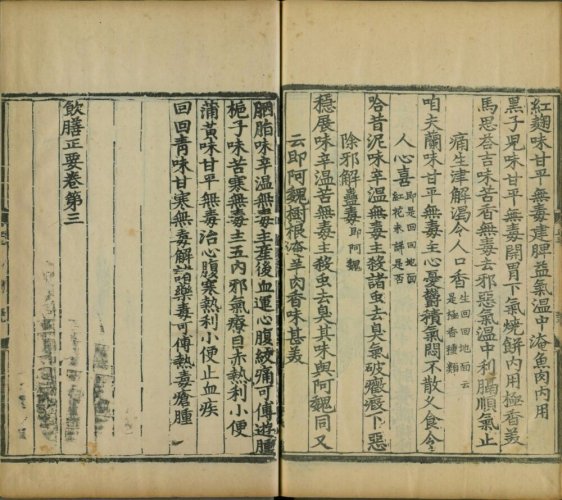 紅麹味甘平無毒建脾益氣温中淹魚肉内用
黒子児味甘平無毒開胃下氣燒餅内用極香美
馬思荅吉味苦香無毒去邪惡氣温中利膈順氣止
痛生津解渴令人口香生回回地面云是極香種類
咱夫蘭味甘平無毒主心憂欝積氣悶不散乆食令
人心喜即是回回地面紅花未詳是否
哈昔泥味辛温無毒主殺諸虫去臭氣破癥瘕下惡
除邪解蠱毒即阿魏
穩展味辛温苦無毒主殺虫去臭其味與阿魏同又
云即阿魏樹根淹羊肉香味甚美
胭脂味辛温無毒主産後血運心腹絞痛可傅遊腫
梔子味苦寒無毒主五内邪氣療目赤熱利小便
蒲黄味甘平無毒治心腹寒熱利小便止血疾
回回青味甘寒無毒解諸藥毒可傅熱毒瘡腫
飲膳正要卷第三